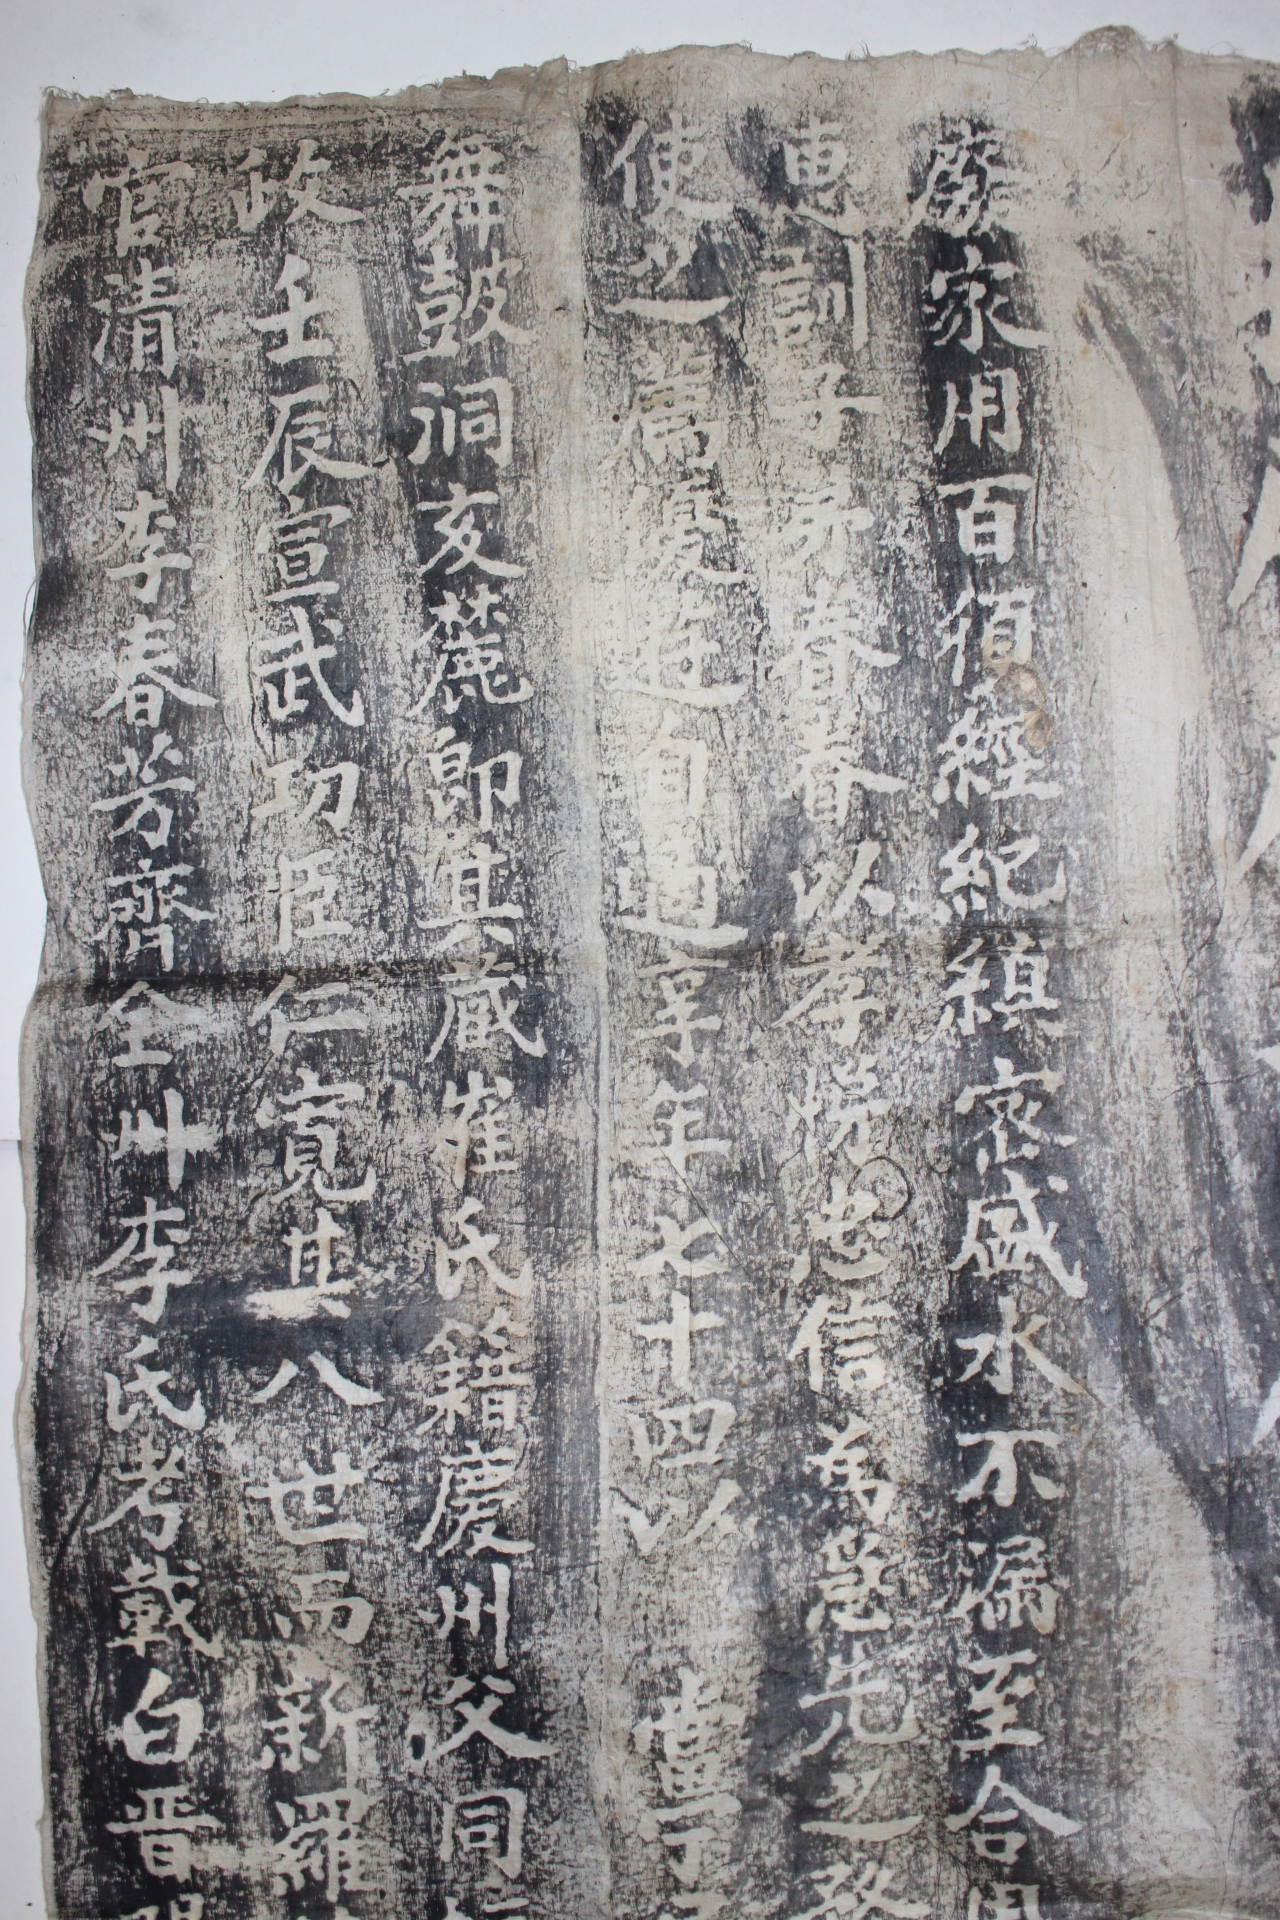 廢家用百佰經紀縝密盛水不漏至合
惠訓子弟眷眷以孝悌忠信爲急先之務
使之一篇優遊自適享年七十四以 壹丁
舞鼓洞亥麓卽其藏崔氏籍慶州父同
政壬辰宣武功臣 仁寬其八世而新羅
官淸州李春芳齊全州李氏考載白晋